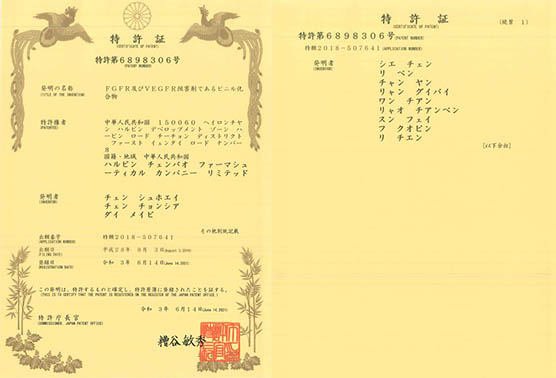 特許証
(CERTIFICATE OF PATENT)
特許第6898306号
(PATENT NUMBER)
発明の名称
(TITLE OF THE INVENTION)
FGFR及びVEGFR阻害剤であるビニル化合物
特許権者
(PATENTEE)
中華人民共和国 150060 ヘイロンチャン ハルビン デベロップメント ゾーン ハーピン ロード チーチョン ディストリクト ファースト イュンダイ ロード ナンバー 8
国籍・地域 中華人民共和国
ハルビン チェンバオ ファーマシューティカル カンパニー リミテッド
発明者
(INVENTOR)
チェン シュホエイ
チェン チョンシア
ダイ メイビ
その他別紙記載
出願番号
(APPLICATION NUMBER)
特願2018-507641
出願日
(FILING DATE)
平成28年 8月 3日(August 3,2016)
登録日
(REGISTRATION DATE)
令和 3年 6月14日(June 14,2021)
この発明は、特許するものと確定し、特許原簿に登録されたことを証する。
(THIS IS TO CERTIFY THAT THE PATENT IS REGISTERED ON THE REGISTER OF THE JAPAN PATENT OFFICE.)
令和 3年 6月14日(June 14,2021)
特許庁長官
(COMMISSIONER, JAPAN PATENT OFFICE)
糟谷敏秀
特許証
(CERTIFICATE OF PATENT)
(続葉 1)
特許第6898306号(PATENT NUMBER)
特願2018-507641(APPLICATION NUMBER)
発明者
(INVENTOR)
シエ チェン
リ ペン
チャン ヤン
リャン ダイバイ
ワン チアン
リャオ チアンペン
スン フェイ
フ クオビン
リ チエン
[以下余白]